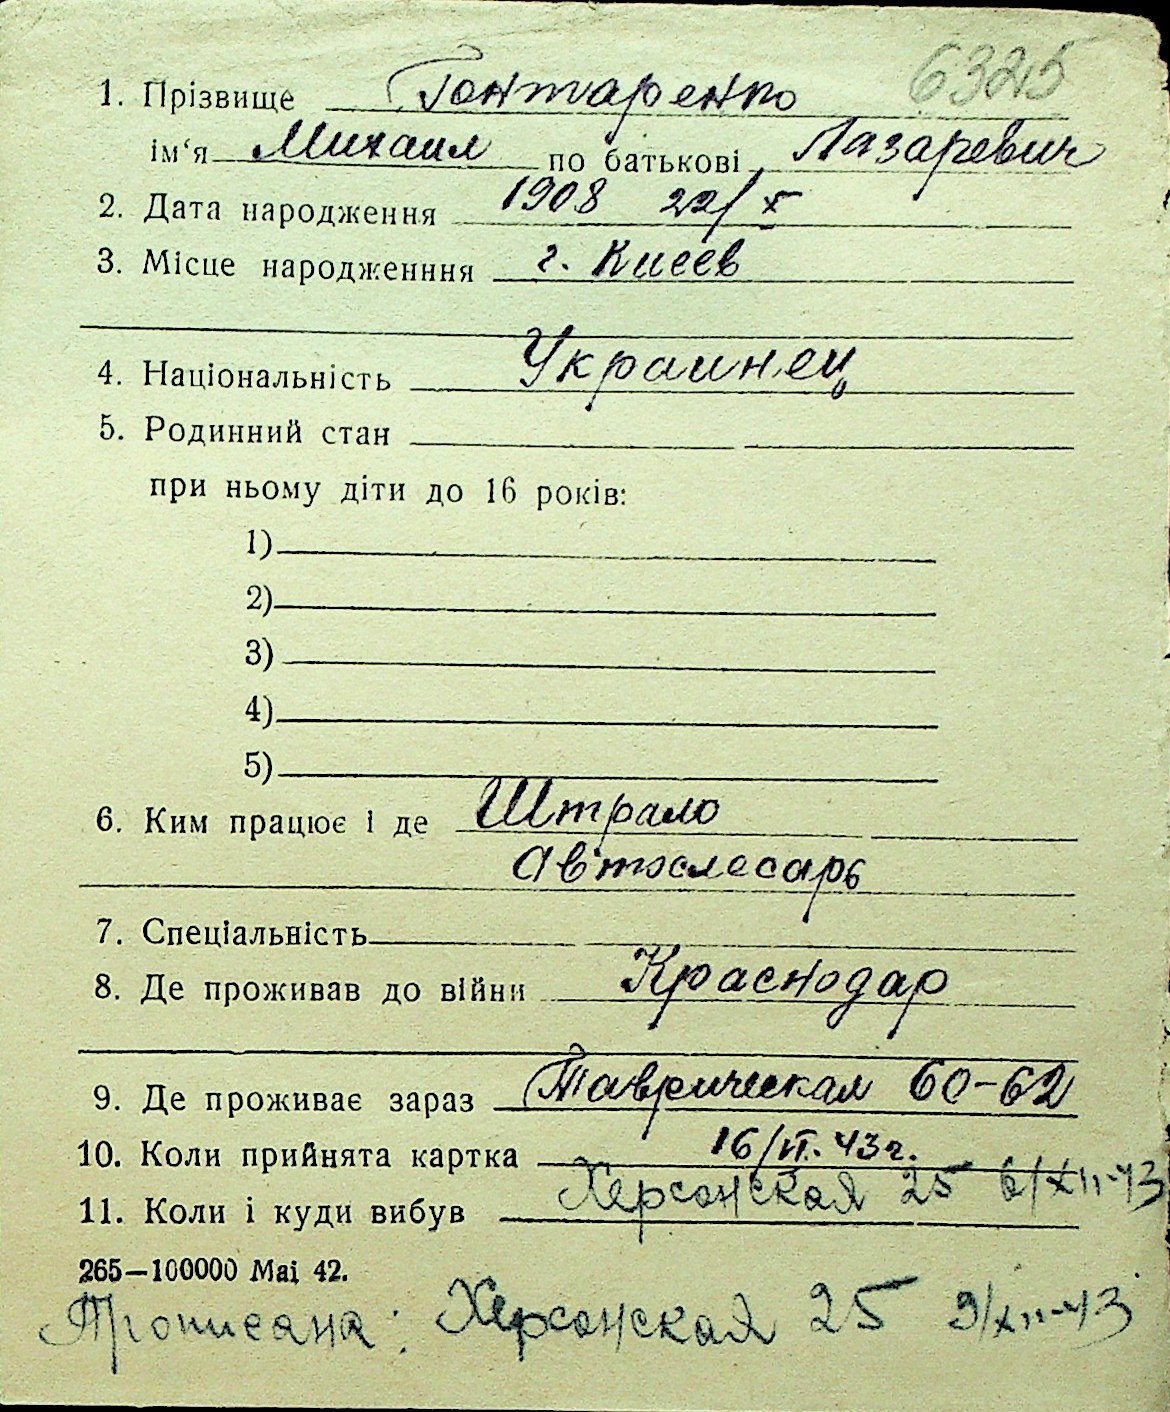 6325
1. Прізвище Гонтаренко
ім‘я Михаил по батькові Лазаревич
2. Дата народження 1908 22/X
3. Місце народженння г. Киев
4. Національність Украинец
5. Родинний стан
при ньому діти до 16 років:
1)
2)
3)
4)
5)
6. Ким працює і де Штрало
Автослесарь
7. Спеціальність
8. Де проживав до війни Краснодар
9. Де проживає зараз Таврическая 60-62
10. Коли прийнята картка 16/VI. 43г.
11. Коли і куди вибув Херсонская 25 6/XII-43
265—100000 Маі 42.
Прописана: Херсонская 25 9/XII-43